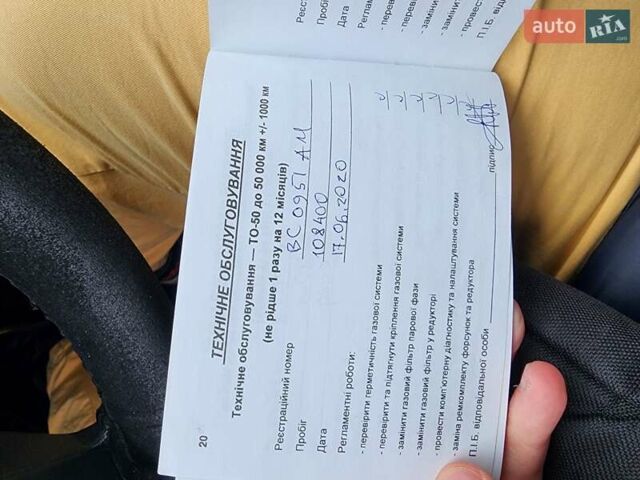 Реєст
Пробіг
Дата
Реглам
- переві
- переві
- заміни
- заміни
- провест
П.І.Б. відп
20
ТЕХНІЧНЕ ОБСЛУГОВУВАННЯ
Технічне обслуговування — ТО-50 до 50 000 км +/- 1000 км
(не рідше 1 разу на 12 місяців)
Реєстраційний номер ВС 0951 АМ
Пробіг 108400
Дата 17.06.2020
Регламентні роботи:
- перевірити герметичність газової системи V
- перевірити та підтягнути кріплення газової системи V
- замінити газовий фільтр парової фази V
- замінити газовий фільтр у редукторі V
- провести комп'ютерну діагностику та налаштування системи V
- заміна ремкомплекту форсунок та редуктора
П.І.Б. відповідальної особи підпис
auto RIA.com